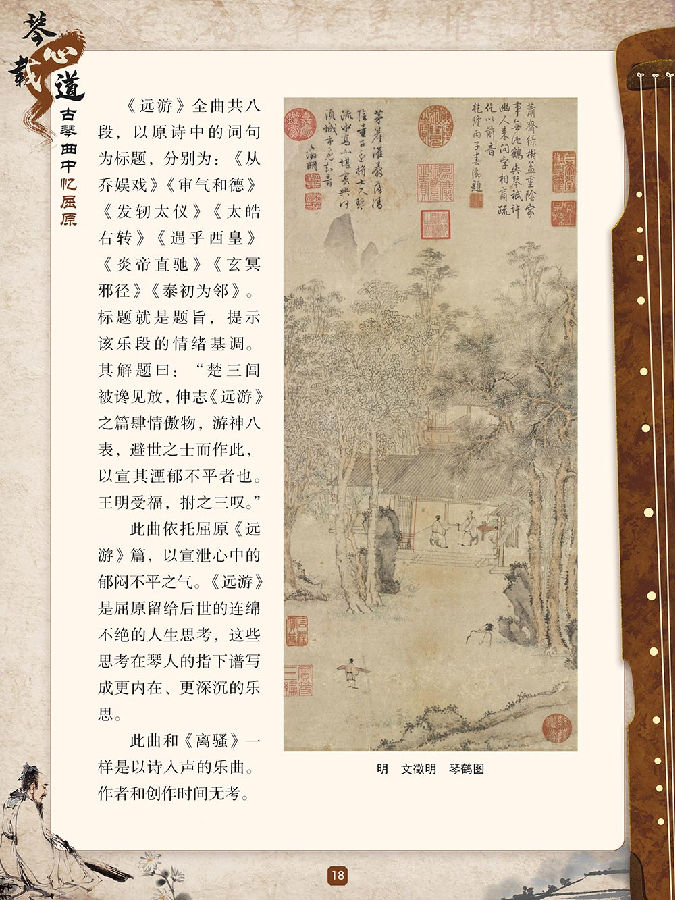 琴心载道
古琴曲中忆屈原
《远游》全曲共八
段，以原诗中的词句
为标题，分别为：《从
乔娱戏》《审气和德》
《发轫太仪》《太皓
右转》《遇乎西皇》
《炎帝直驰》《玄冥
邪径》《泰初为邻》。
标题就是题旨，提示
该乐段的情绪基调。
其解题曰：“楚三闾
被谗见放，伸志《远游》
之篇肆情傲物，游神八
表，避世之士而作此，
以宣其湮郁不平者也。
王明受福，拊之三叹。”
此曲依托屈原《远
游》篇，以宣泄心中的
郁闷不平之气。《远游》
是屈原留给后世的连绵
不绝的人生思考，这些
思考在琴人的指下谱写
成更内在、更深沉的乐
思。
此曲和《离骚》一
样是以诗入声的乐曲。
作者和创作时间无考。
明 文徵明 琴鹤图
18